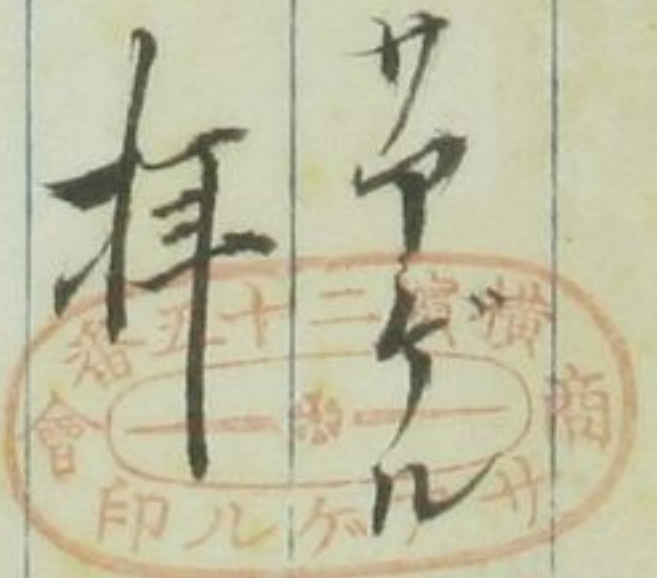 サアゲル
拝
横濱二十五番
商會
サアゲル印